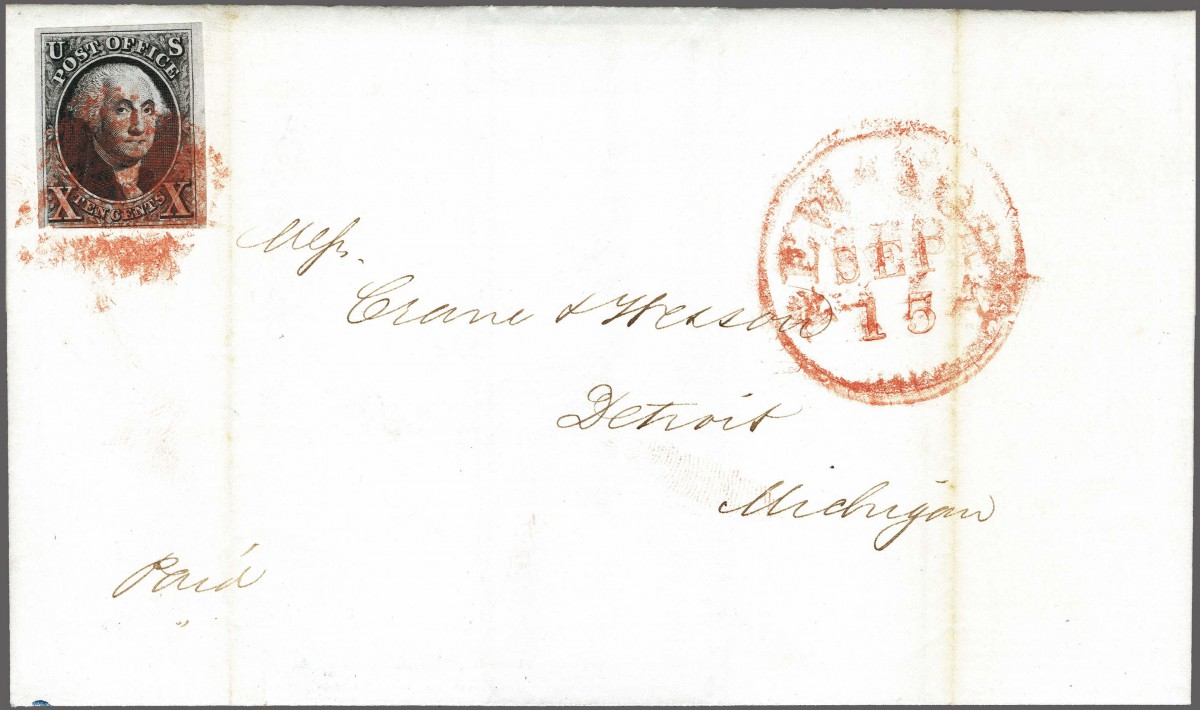 U S
POST OFFICE
X TEN CENTS X
NEW YORK
SEP
15
Mess.
Crane & Wesson
Detroit
Michigan
Paid